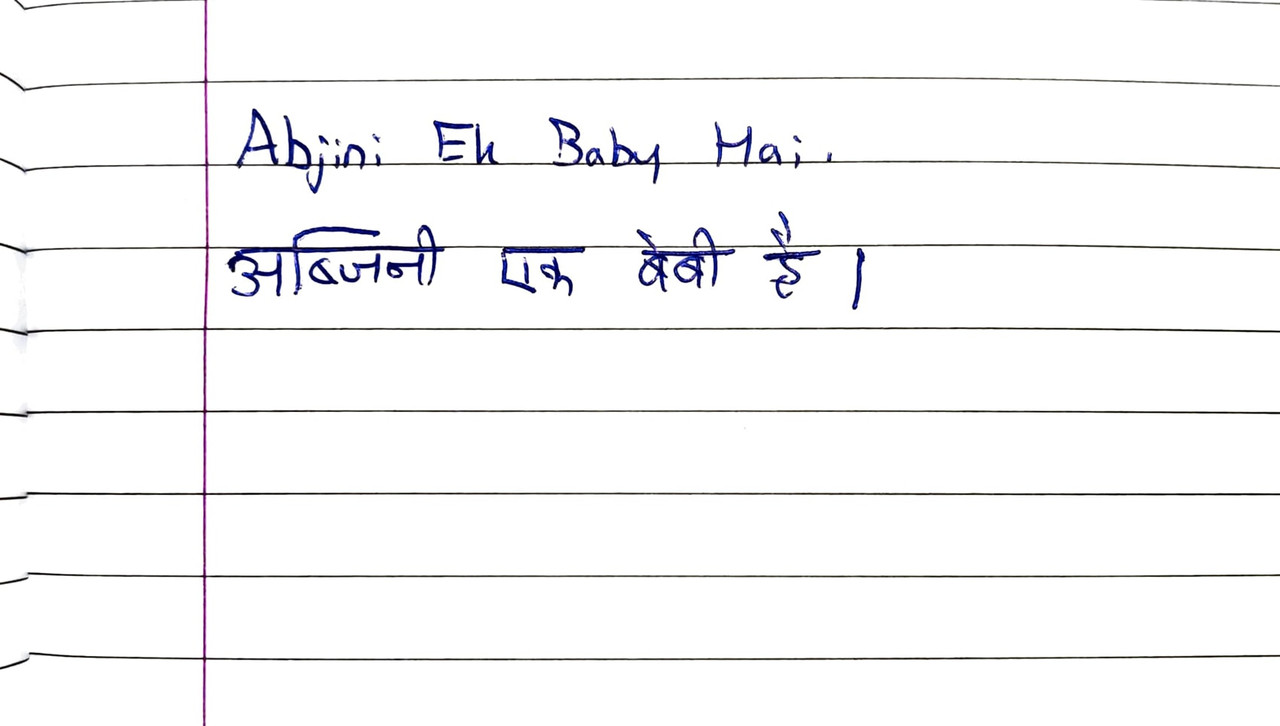 Abjini Ek Baby Hai.
अब्जिनी एक बेबी है।